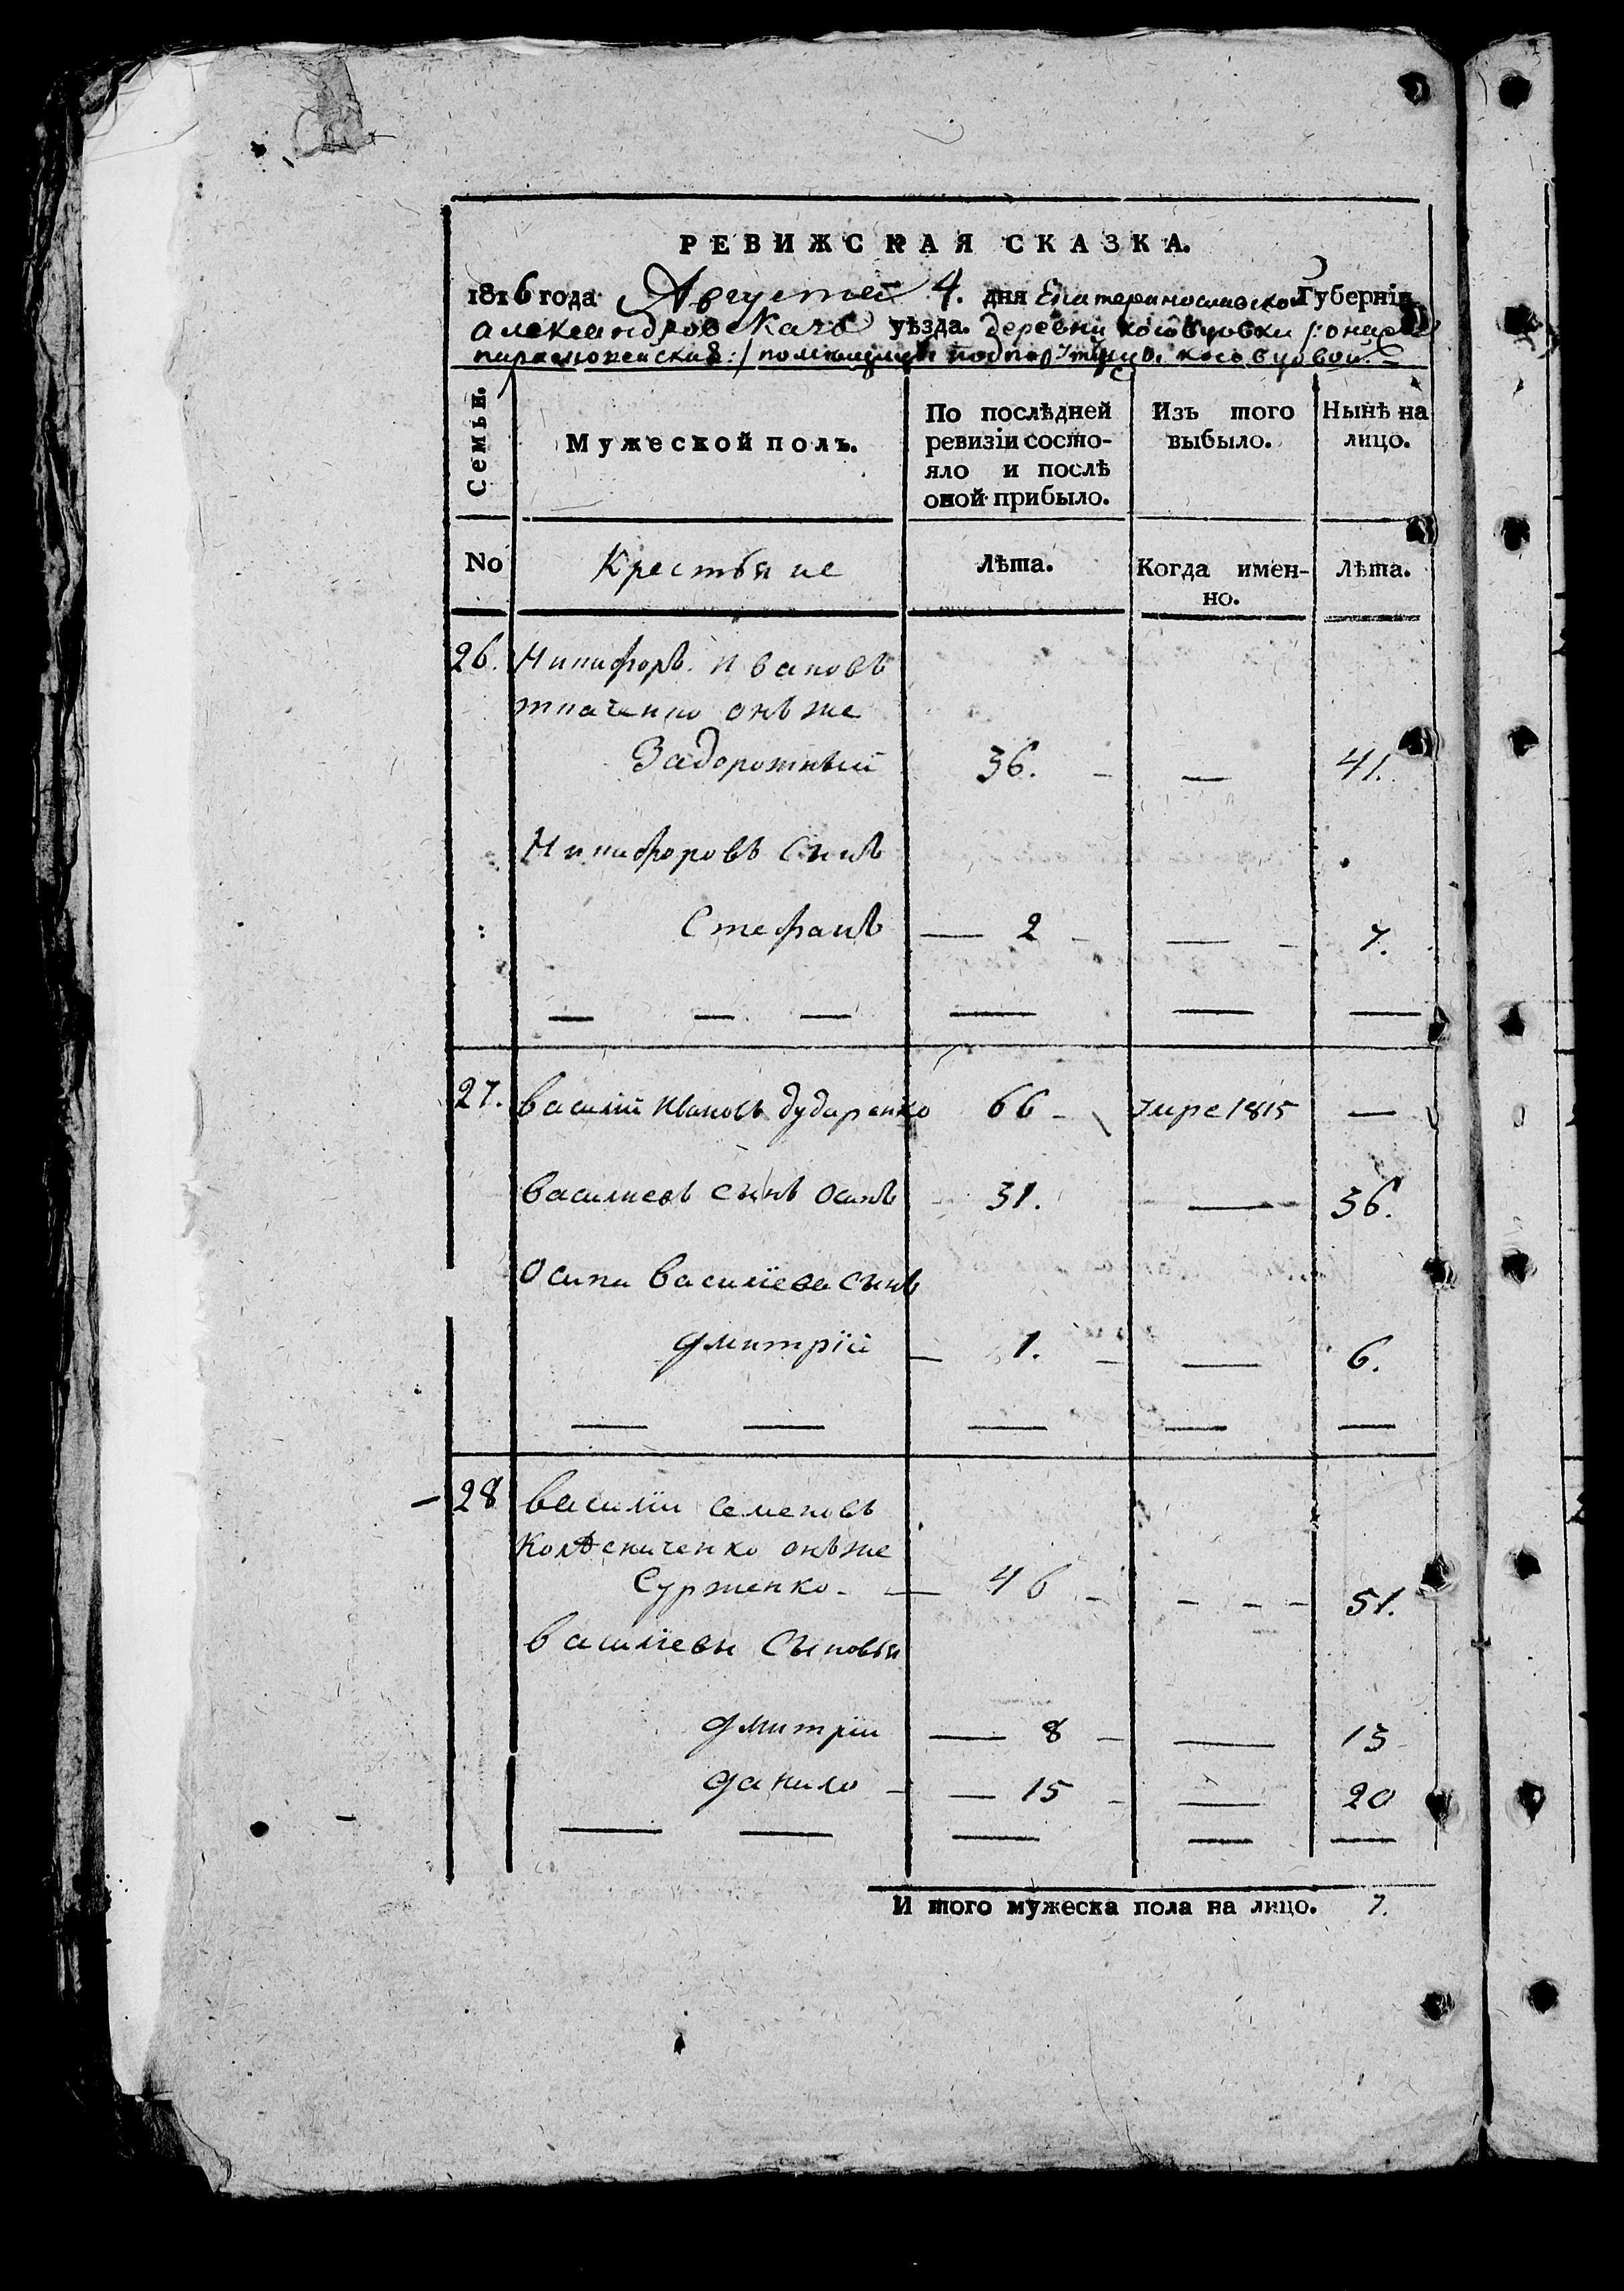 РЕВИЖСКАЯ СКАЗКА.
1816 года Августа 4. дня Екатеринославской Губернiи
Александровскаго уѣзда. деревни косовцовки /: она же
:/ помещицы косовцовой.
Семьи.
Мужеской полъ.
По послѣдней ревизiи состо-
яло и послѣ
оной прибыло.
Изъ того
выбыло.
Нынѣ на
лицо.
No
Крестьяне
Лѣта.
Когда имен-
но.
Лѣта.
26. Никифоръ Ивановъ
ткаченко онъ же
Задорожный 36. — — 41.
Никифоровъ Сынъ
Стефанъ — 2 — — 7.
27. Василiй Ивановъ Дударенко 66 — умре 1815 —
Василиевъ Сынъ Осипъ 31. — 36.
Осипа Василïева Сынъ
Дмитрïй — 1. — — 6.
28 Василïи Семеновъ
Колѣсниченко онъ же
Сурженко — 46 — — — — 51.
Василïевы Сыновья
Дмитрïи — 8 — — 13
Данило — — 15 — — 20
И того мужеска пола на лицо. 7.